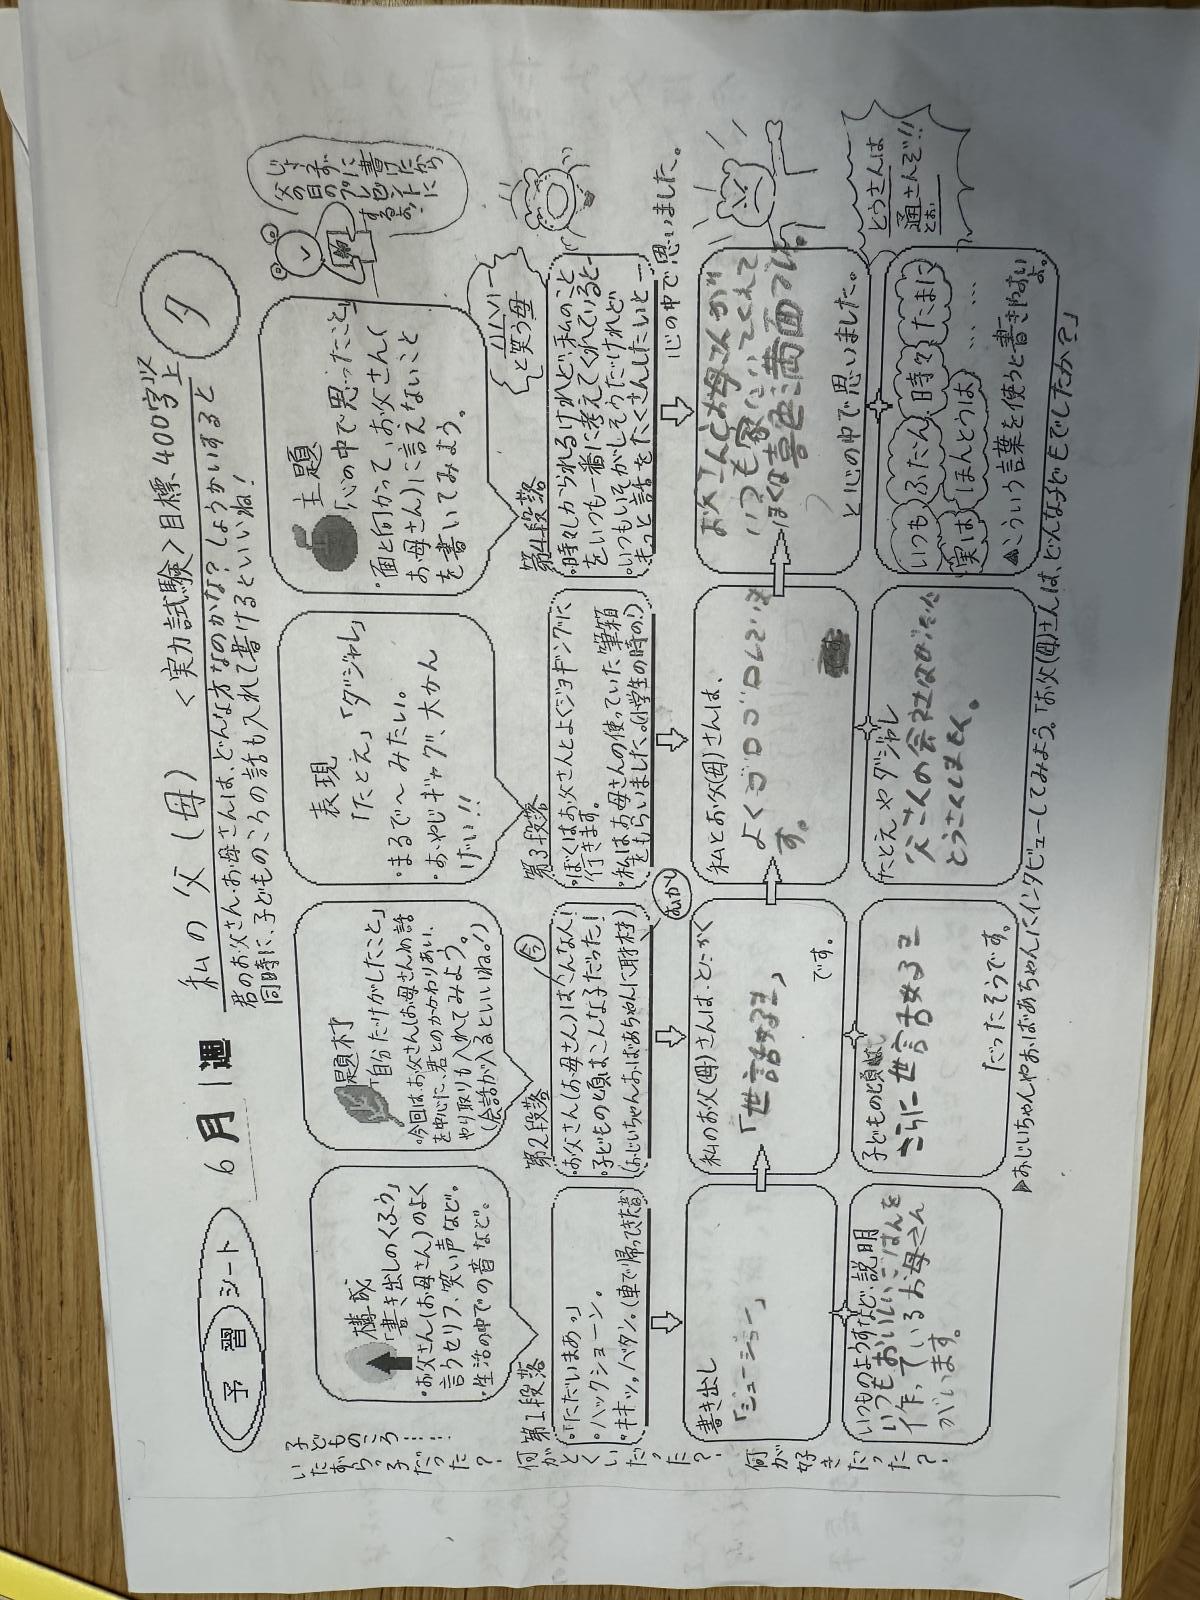 予習シート 6月1週 私の父(母) <実力試験>目標400字以上
タ
君のお父さん・お母さんは、どんな方なのかな?しょうかいすると
同時に、子どものころの話も入れて書けるといいね!
じょうずに書けたから
父の日のプレゼントに
するよ!
子どものころ……
いたずらっ子だった?
何がとくいだった?
何が好きだった?
構成
「書き出しのくふう」
・お父さん(お母さん)のよく
言うセリフ、笑い声など。
・生活の中での音など。
題材
「自分だけがしたこと」
・今回は、お父さん(お母さん)の話
を中心に、君とのかかわりあい、
やり取りも入れてみよう。
(会話が入るといいね。)
表現
「たとえ」「ダジャレ」
・まるで〜みたい。
・おやじギャグ、大かん
げい!!
主題
「心の中で思ったこと」
・面と向かって、お父さん(
お母さん)に言えないこと
を書いてみよう。
第1段落
・「ただいまあっ」
・ハックショーン。
・キキッ。バタン。(車で帰ってきた音)
第2段落
今
・お父さん(お母さん)はこんな人!
・子どもの頃はこんな子だった!
(おじいちゃんおばあちゃんに取材)
むかし
第3段落
・ぼくはお父さんとよくジョギングに
行きます。
・私はお母さんの使っていた筆箱
をもらいました。(小学生の時の!)
第4段落
ハハハ…
と笑う母
・時々しかられるけれど、私のこと
をいつも一番に考えてくれていると…
・いつもいそがしそうだけれど
もっと話をたくさんしたいと…
心の中で思いました。
書き出し
「ジュージュー」
私のお父(母)さんは、とにかく
「世話好き」
です。
私とお父(母)さんは、
よくゴロゴロしていま
す。
お父さんとお母さんが
いつも家にいてくれて
ぼくは喜色満面です。
と心の中で思いました。
いつものようすなど、説明
いつもおいしいごはんを
作っているお母さん
がいます。
子どもの頃は、
さらに世話好き
だったそうです。
たとえやダジャレ
父さんの会社
とうさんしません。
いつも ふだん 時々 たまに
実は ほんとうは ……
▲こういう言葉を使うと書きやすいよ。
とうさんは
通さんぞ!!
とお
▶おじいちゃんやおばあちゃんにインタビューしてみよう。「お父(母)さんは、どんな子どもでしたか?」